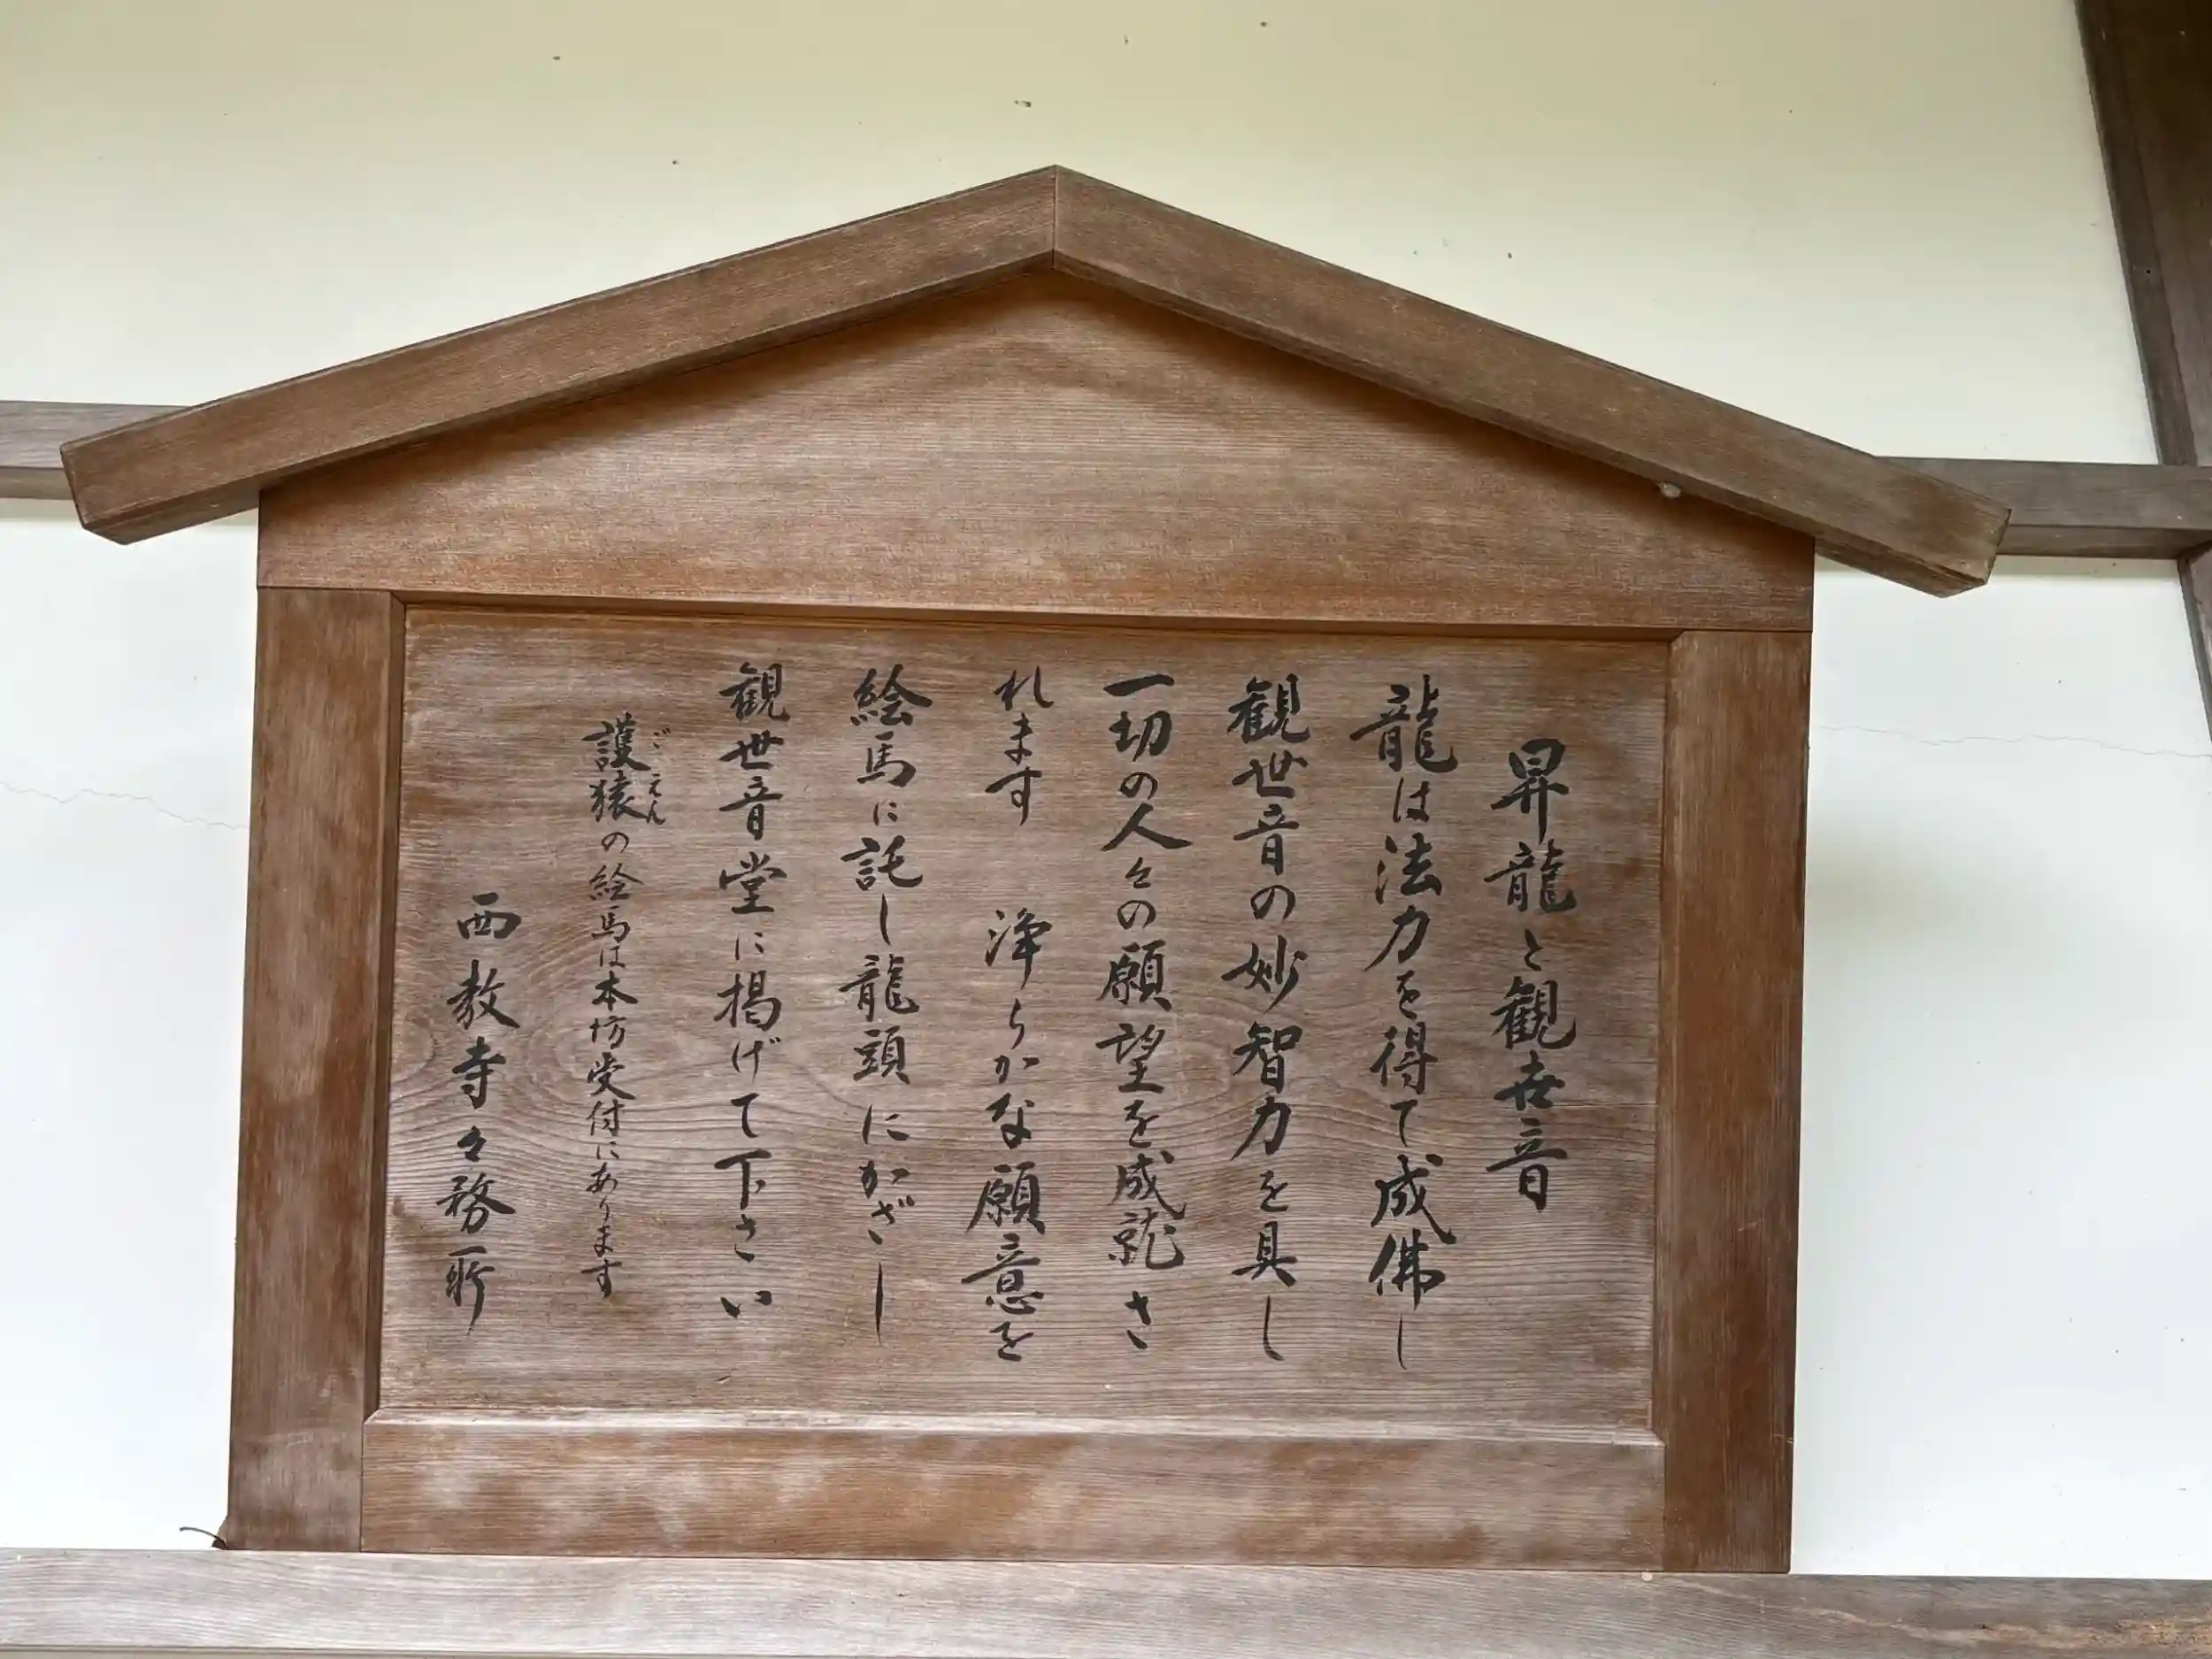 昇龍と観世音
龍は法力を得て成佛し
観世音の妙智力を具し
一切の人々の願望を成就さ
れます　浄らかな願意を
絵馬に託し龍頭にかざし
観世音堂に掲げて下さい
護猿の絵馬は本坊受付にあります
ごえん
西教寺々務所